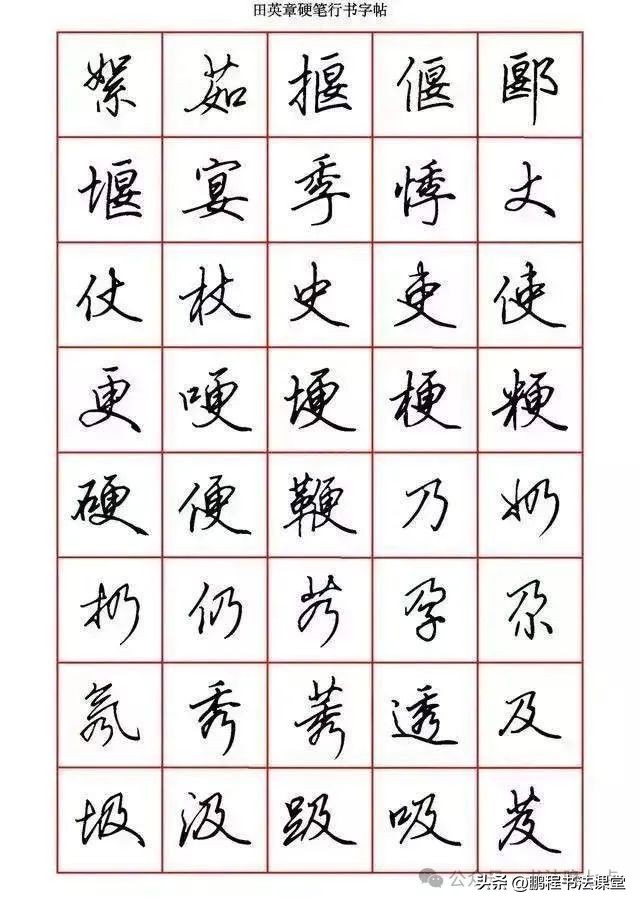 田英章硬笔行书字帖
絮茹揠偃郾
堰宴季悸丈
仗杖史吏使
更哽埂梗粳
硬便鞭乃奶
扔仍艿孕尕
氖秀莠透及
圾汲趿吸芨
公众号
头条@鹏程书法课堂